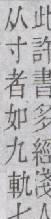 此許書多經淺
从寸者如九軌